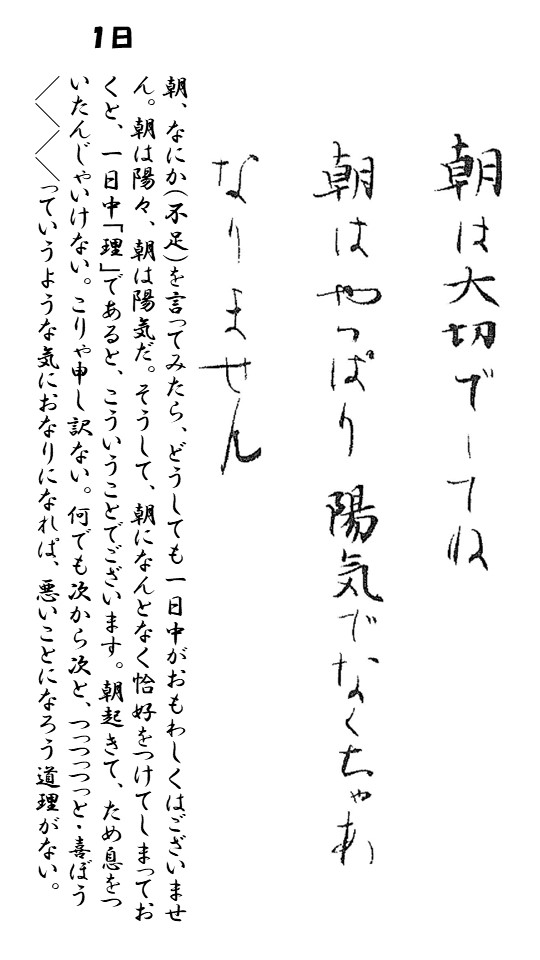 1日
朝は大切でしてね
朝はやっぱり陽気でなくちゃあ
なりません
朝、なにか(不足)を言ってみたら、どうしても一日中がおもわしくはございませ
ん。朝は陽々、朝は陽気だ。そうして、朝になんとなく恰好をつけてしまってお
くと、一日中「理」であると、こういうことでございます。朝起きて、ため息をつ
いたんじゃいけない。こりゃ申し訳ない。何でも次から次と、つっつっつっと・喜ぼう
〳〵〳〵っていうような気におなりになれば、悪いことになろう道理がない。